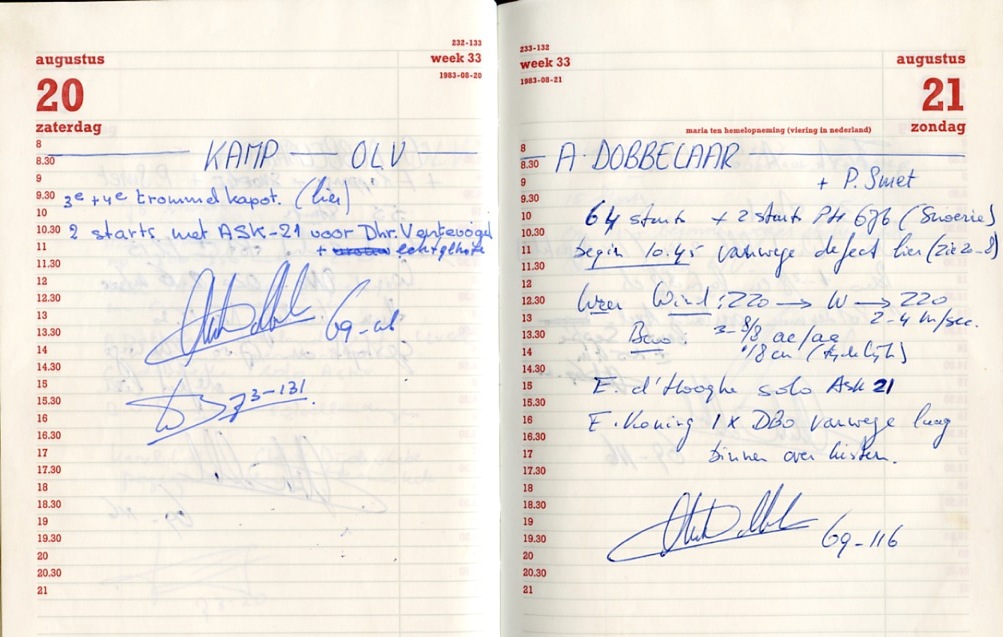 232-133
augustus
week 33
1983-08-20
20
zaterdag
8
8.30
KAMP — OLV
9
9.30
3e + 4e trommel kapot. (lier)
10
10.30
2 starts met ASK-21 voor Dhr. Ventevogel
11
+ echtgenote
11.30
12
12.30
13
69-
13.30
14
14.30
15
73-131.
15.30
16
16.30
17
17.30
18
18.30
19
19.30
20
20.30
21
233-132
week 33
augustus
1983-08-21
21
maria ten hemelopneming (viering in nederland)
zondag
8
8.30
A. DOBBELAAR
9
+ P. Smet
9.30
10
64 starts + 2 starts PH 676
10.30
11
begin 10.45 vanwege defect lier (zie 20-8)
11.30
12
12.30
Weer Wind: 220 → W → 220
13
2-4 m/sec.
13.30
3-8/8 ac/
14
14.30
15
E. d'Hooghe solo Ask 21
15.30
16
E. Koning 1 x DBO vanwege laag
16.30
17
binnen over kisten.
17.30
18
18.30
19
19.30
69-116
20
20.30
21